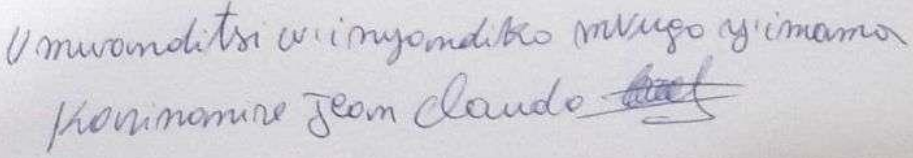 Umwanditsi w'inyandiko mvugo y'imama
Kavinamire Jean Claude